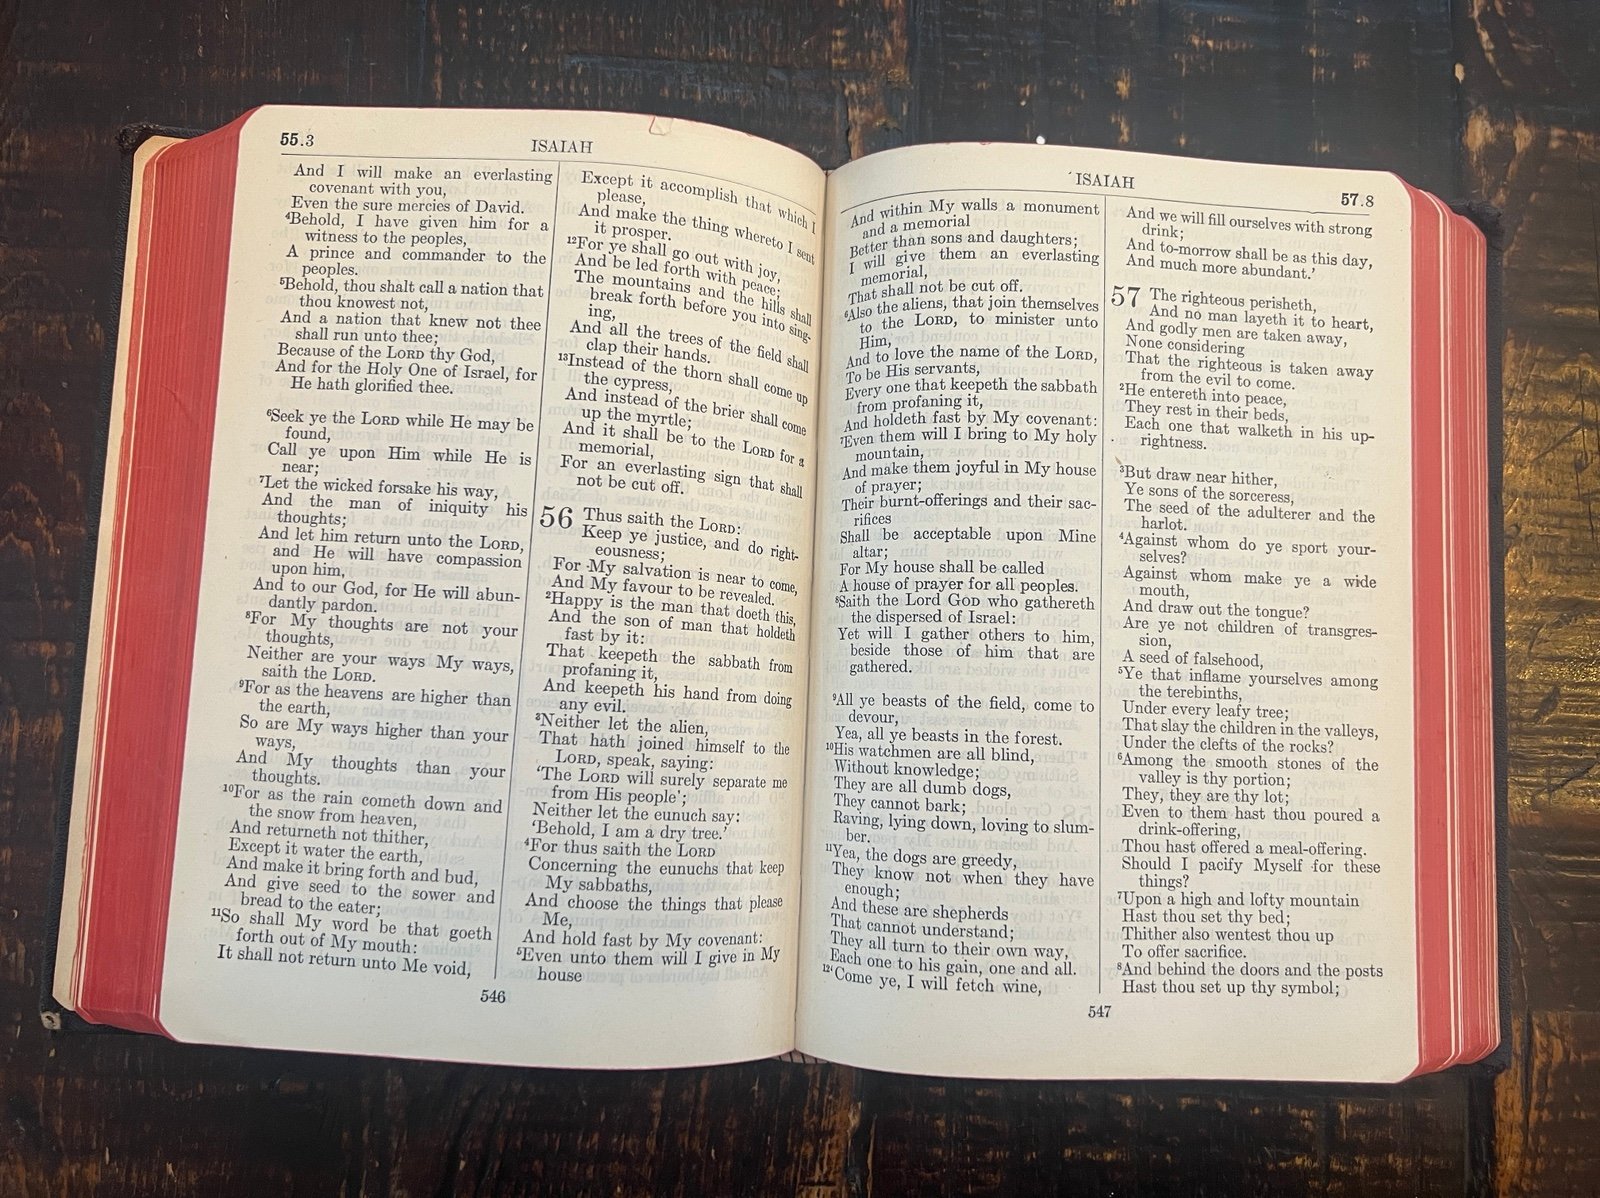 55.3
ISAIAH
And I will make an everlasting
covenant with you,
Even the sure mercies of David.
⁴Behold, I have given him for a
witness to the peoples,
A prince and commander to the
peoples.
⁵Behold, thou shalt call a nation that
thou knowest not,
And a nation that knew not thee
shall run unto thee;
Because of the LORD thy God,
And for the Holy One of Israel, for
He hath glorified thee.
⁶Seek ye the LORD while He may be
found,
Call ye upon Him while He is
near;
⁷Let the wicked forsake his way,
And the man of iniquity his
thoughts;
And let him return unto the LORD,
and He will have compassion
upon him,
And to our God, for He will abun-
dantly pardon.
⁸For My thoughts are not your
thoughts,
Neither are your ways My ways,
saith the LORD.
⁹For as the heavens are higher than
the earth,
So are My ways higher than your
ways,
And My thoughts than your
thoughts.
¹⁰For as the rain cometh down and
the snow from heaven,
And returneth not thither,
Except it water the earth,
And make it bring forth and bud,
And give seed to the sower and
bread to the eater;
¹¹So shall My word be that goeth
forth out of My mouth:
It shall not return unto Me void,
Except it accomplish that which I
please,
And make the thing whereto I sent
it prosper.
¹²For ye shall go out with joy,
And be led forth with peace;
The mountains and the hills shall
break forth before you into sing-
ing,
And all the trees of the field shall
clap their hands.
¹³Instead of the thorn shall come up
the cypress,
And instead of the brier shall come
up the myrtle;
And it shall be to the LORD for a
memorial,
For an everlasting sign that shall
not be cut off.
56 Thus saith the LORD:
Keep ye justice, and do right-
eousness;
For My salvation is near to come,
And My favour to be revealed.
²Happy is the man that doeth this,
And the son of man that holdeth
fast by it:
That keepeth the sabbath from
profaning it,
And keepeth his hand from doing
any evil.
³Neither let the alien,
That hath joined himself to the
LORD, speak, saying:
'The LORD will surely separate me
from His people';
Neither let the eunuch say:
'Behold, I am a dry tree.'
⁴For thus saith the LORD
Concerning the eunuchs that keep
My sabbaths,
And choose the things that please
Me,
And hold fast by My covenant:
⁵Even unto them will I give in My
house
546
ISAIAH
57.8
And within My walls a monument
and a memorial
Better than sons and daughters;
I will give them an everlasting
memorial,
That shall not be cut off.
⁶Also the aliens, that join themselves
to the LORD, to minister unto
Him,
And to love the name of the LORD,
To be His servants,
Every one that keepeth the sabbath
from profaning it,
And holdeth fast by My covenant:
⁷Even them will I bring to My holy
mountain,
And make them joyful in My house
of prayer;
Their burnt-offerings and their sac-
rifices
Shall be acceptable upon Mine
altar;
For My house shall be called
A house of prayer for all peoples.
⁸Saith the Lord GOD who gathereth
the dispersed of Israel:
Yet will I gather others to him,
beside those of him that are
gathered.
⁹All ye beasts of the field, come to
devour,
Yea, all ye beasts in the forest.
¹⁰His watchmen are all blind,
Without knowledge;
They are all dumb dogs,
They cannot bark;
Raving, lying down, loving to slum-
ber.
¹¹Yea, the dogs are greedy,
They know not when they have
enough;
And these are shepherds
That cannot understand;
They all turn to their own way,
Each one to his gain, one and all.
¹²'Come ye, I will fetch wine,
And we will fill ourselves with strong
drink;
And to-morrow shall be as this day,
And much more abundant.'
57 The righteous perisheth,
And no man layeth it to heart,
And godly men are taken away,
None considering
That the righteous is taken away
from the evil to come.
²He entereth into peace,
They rest in their beds,
Each one that walketh in his up-
rightness.
³But draw near hither,
Ye sons of the sorceress,
The seed of the adulterer and the
harlot.
⁴Against whom do ye sport your-
selves?
Against whom make ye a wide
mouth,
And draw out the tongue?
Are ye not children of transgres-
sion,
A seed of falsehood,
⁵Ye that inflame yourselves among
the terebinths,
Under every leafy tree;
That slay the children in the valleys,
Under the clefts of the rocks?
⁶Among the smooth stones of the
valley is thy portion;
They, they are thy lot;
Even to them hast thou poured a
drink-offering,
Thou hast offered a meal-offering.
Should I pacify Myself for these
things?
⁷Upon a high and lofty mountain
Hast thou set thy bed;
Thither also wentest thou up
To offer sacrifice.
⁸And behind the doors and the posts
Hast thou set up thy symbol;
547